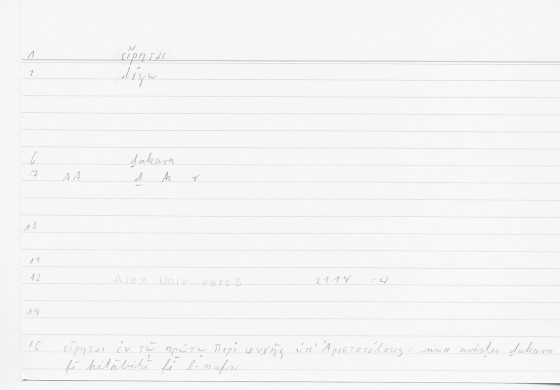 1 εἴρηται
2 λέγω
6 ḏakara
7 AA ḏ k r
10
11
12 Alex Univ vers B 21.14
14
16 εἴρηται ἐν τῷ πρώτῳ Περὶ ψυχῆς ὑπ' Ἀριστοτέλους· ḏakara
fī kitābihī fī l-nafs